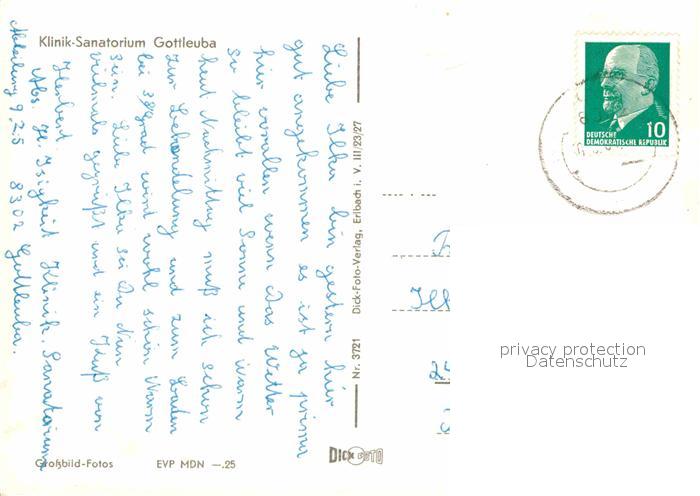 Klinik-Sanatorium Gottleuba
Liebe Ilka bin gestern hier
gut angekommen es ist ja prima
hier oraллen wenn das Wetter
so bleibt viel Sonne und warm
heut Nachmittag muß ich schon
zur Behandlung und zum Baden
bei 38 grad wird wohl schön warm
sein. Liebe Ilka sei Du nun
vielmals gegrüßt und ein Kuß von
Herbert.
Abs. H. Isigkeit Klinik. Sanatorium
Abteilung 9.25 8302 Gottleuba.
Großbild-Fotos EVP MDN —.25
Nr. 3721 Dick-Foto-Verlag, Erlbach i. V. III/23/27
DICK FOTO
10
DEUTSCHE
DEMOKRATISCHE REPUBLIK
privacy protection
Datenschutz